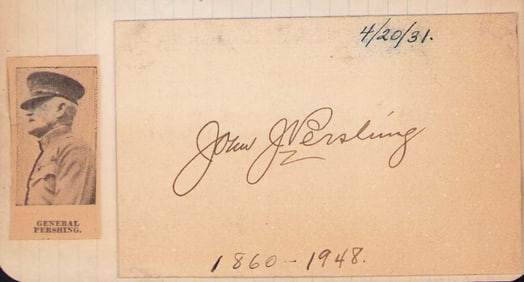 4/20/31.
John J. Pershing
GENERAL
PERSHING.
1860 - 1948.